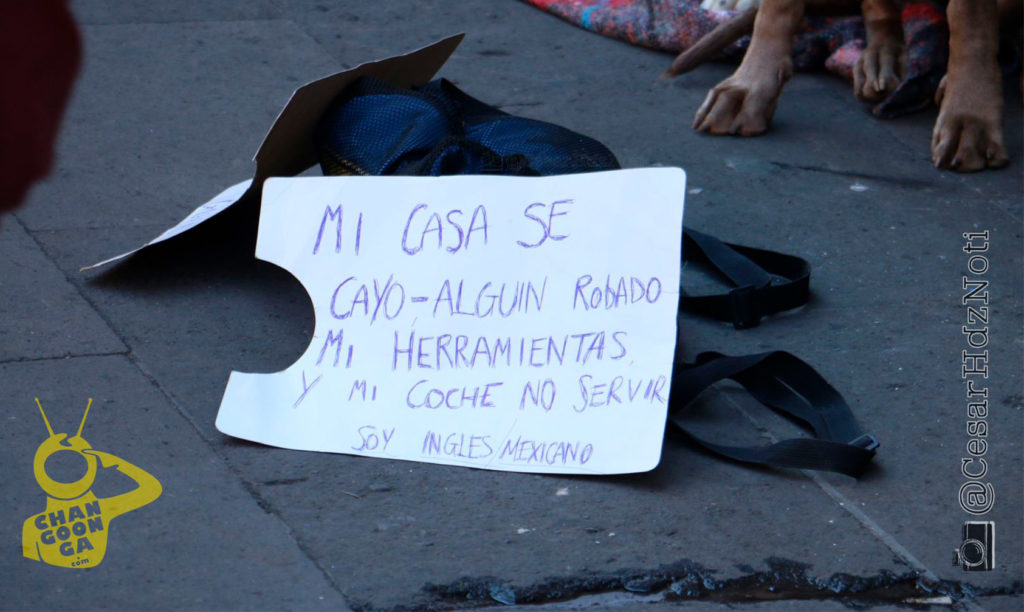 MI CASA SE
CAYO-ALGUIN ROBADO
MI HERRAMIENTAS,
Y MI COCHE NO SERVIR
SOY INGLES/MEXICANO
CHAN
GOON
GA
.com
@CesarHdzNoti